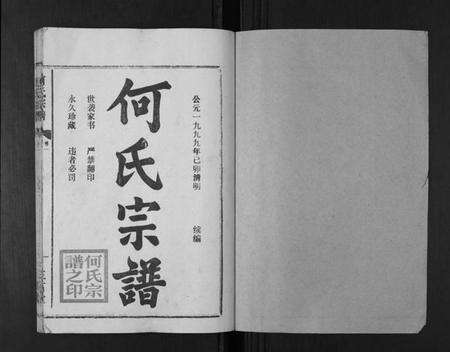 公元一九九九年己卯清明 续编
何氏宗譜
世裘家书 严禁翻印
永久珍藏 违者必罚
何氏宗
譜之印